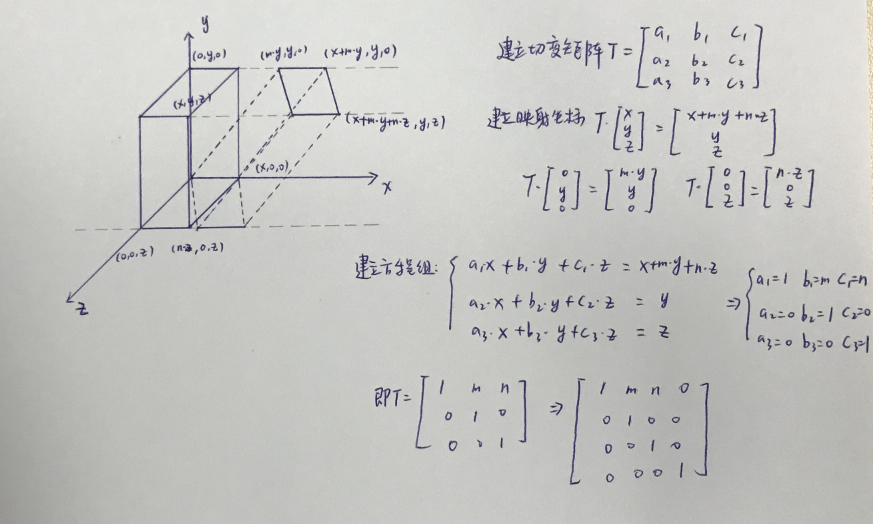 y
(0,y,0)
(m·y,y,0)
(x+m·y,y,0)
(x,y,z)
(x+m·y+n·z,y,z)
(x,0,0)
x
(0,0,z)
(n·z,0,z)
z
建立切变矩阵 T = [a₁ b₁ c₁
a₂ b₂ c₂
a₃ b₃ c₃]
建立映射坐标 T·[x y z] = [x+m·y+n·z y z]
T·[0 y 0] = [m·y y 0] T·[0 0 z] = [n·z 0 z]
建立方程组: { a₁x + b₁·y + c₁·z = x+m·y+n·z
a₂·x + b₂·y + c₂·z = y
a₃·x + b₃·y + c₃·z = z
⇒ { a₁=1 b₁=m c₁=n
a₂=0 b₂=1 c₂=0
a₃=0 b₃=0 c₃=1
即T= [1 m n
0 1 0
0 0 1]
⇒ [1 m n 0
0 1 0 0
0 0 1 0
0 0 0 1]